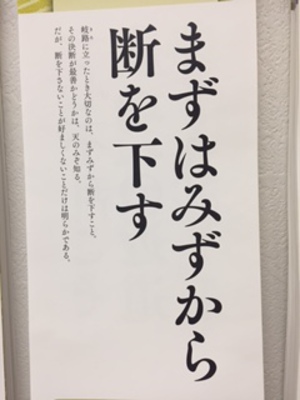 まずはみずから
断を下す
岐路に立ったとき大切なのは、まずみずから断を下すこと。
その決断が最善かどうかは、天のみぞ知る。
だが、断を下さないことが好ましくないことだけは明らかである。